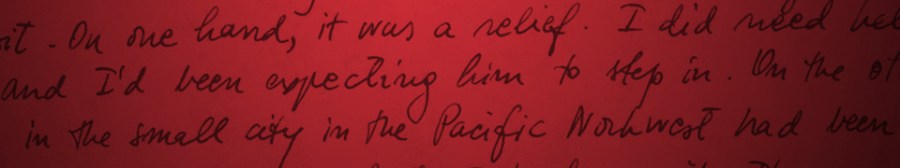 it. On one hand, it was a relief. I did need
and I'd been expecting him to step in. On the
in the small city in the Pacific Norhwest had been